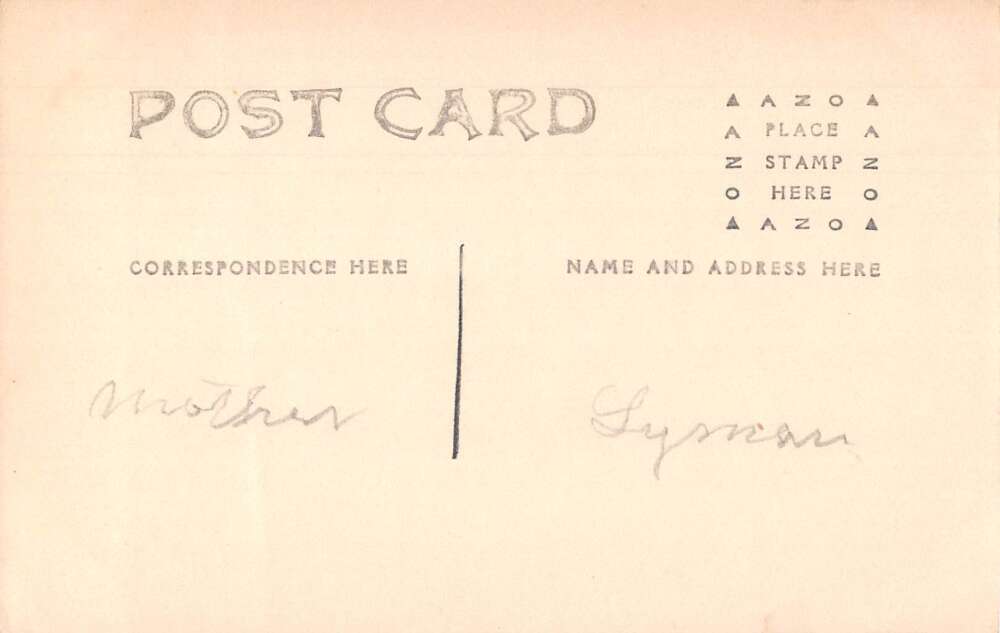 POST CARD
▲ A Z O ▲
A PLACE A
N STAMP N
O HERE O
▲ A Z O ▲
CORRESPONDENCE HERE
NAME AND ADDRESS HERE
Mother
Lyman